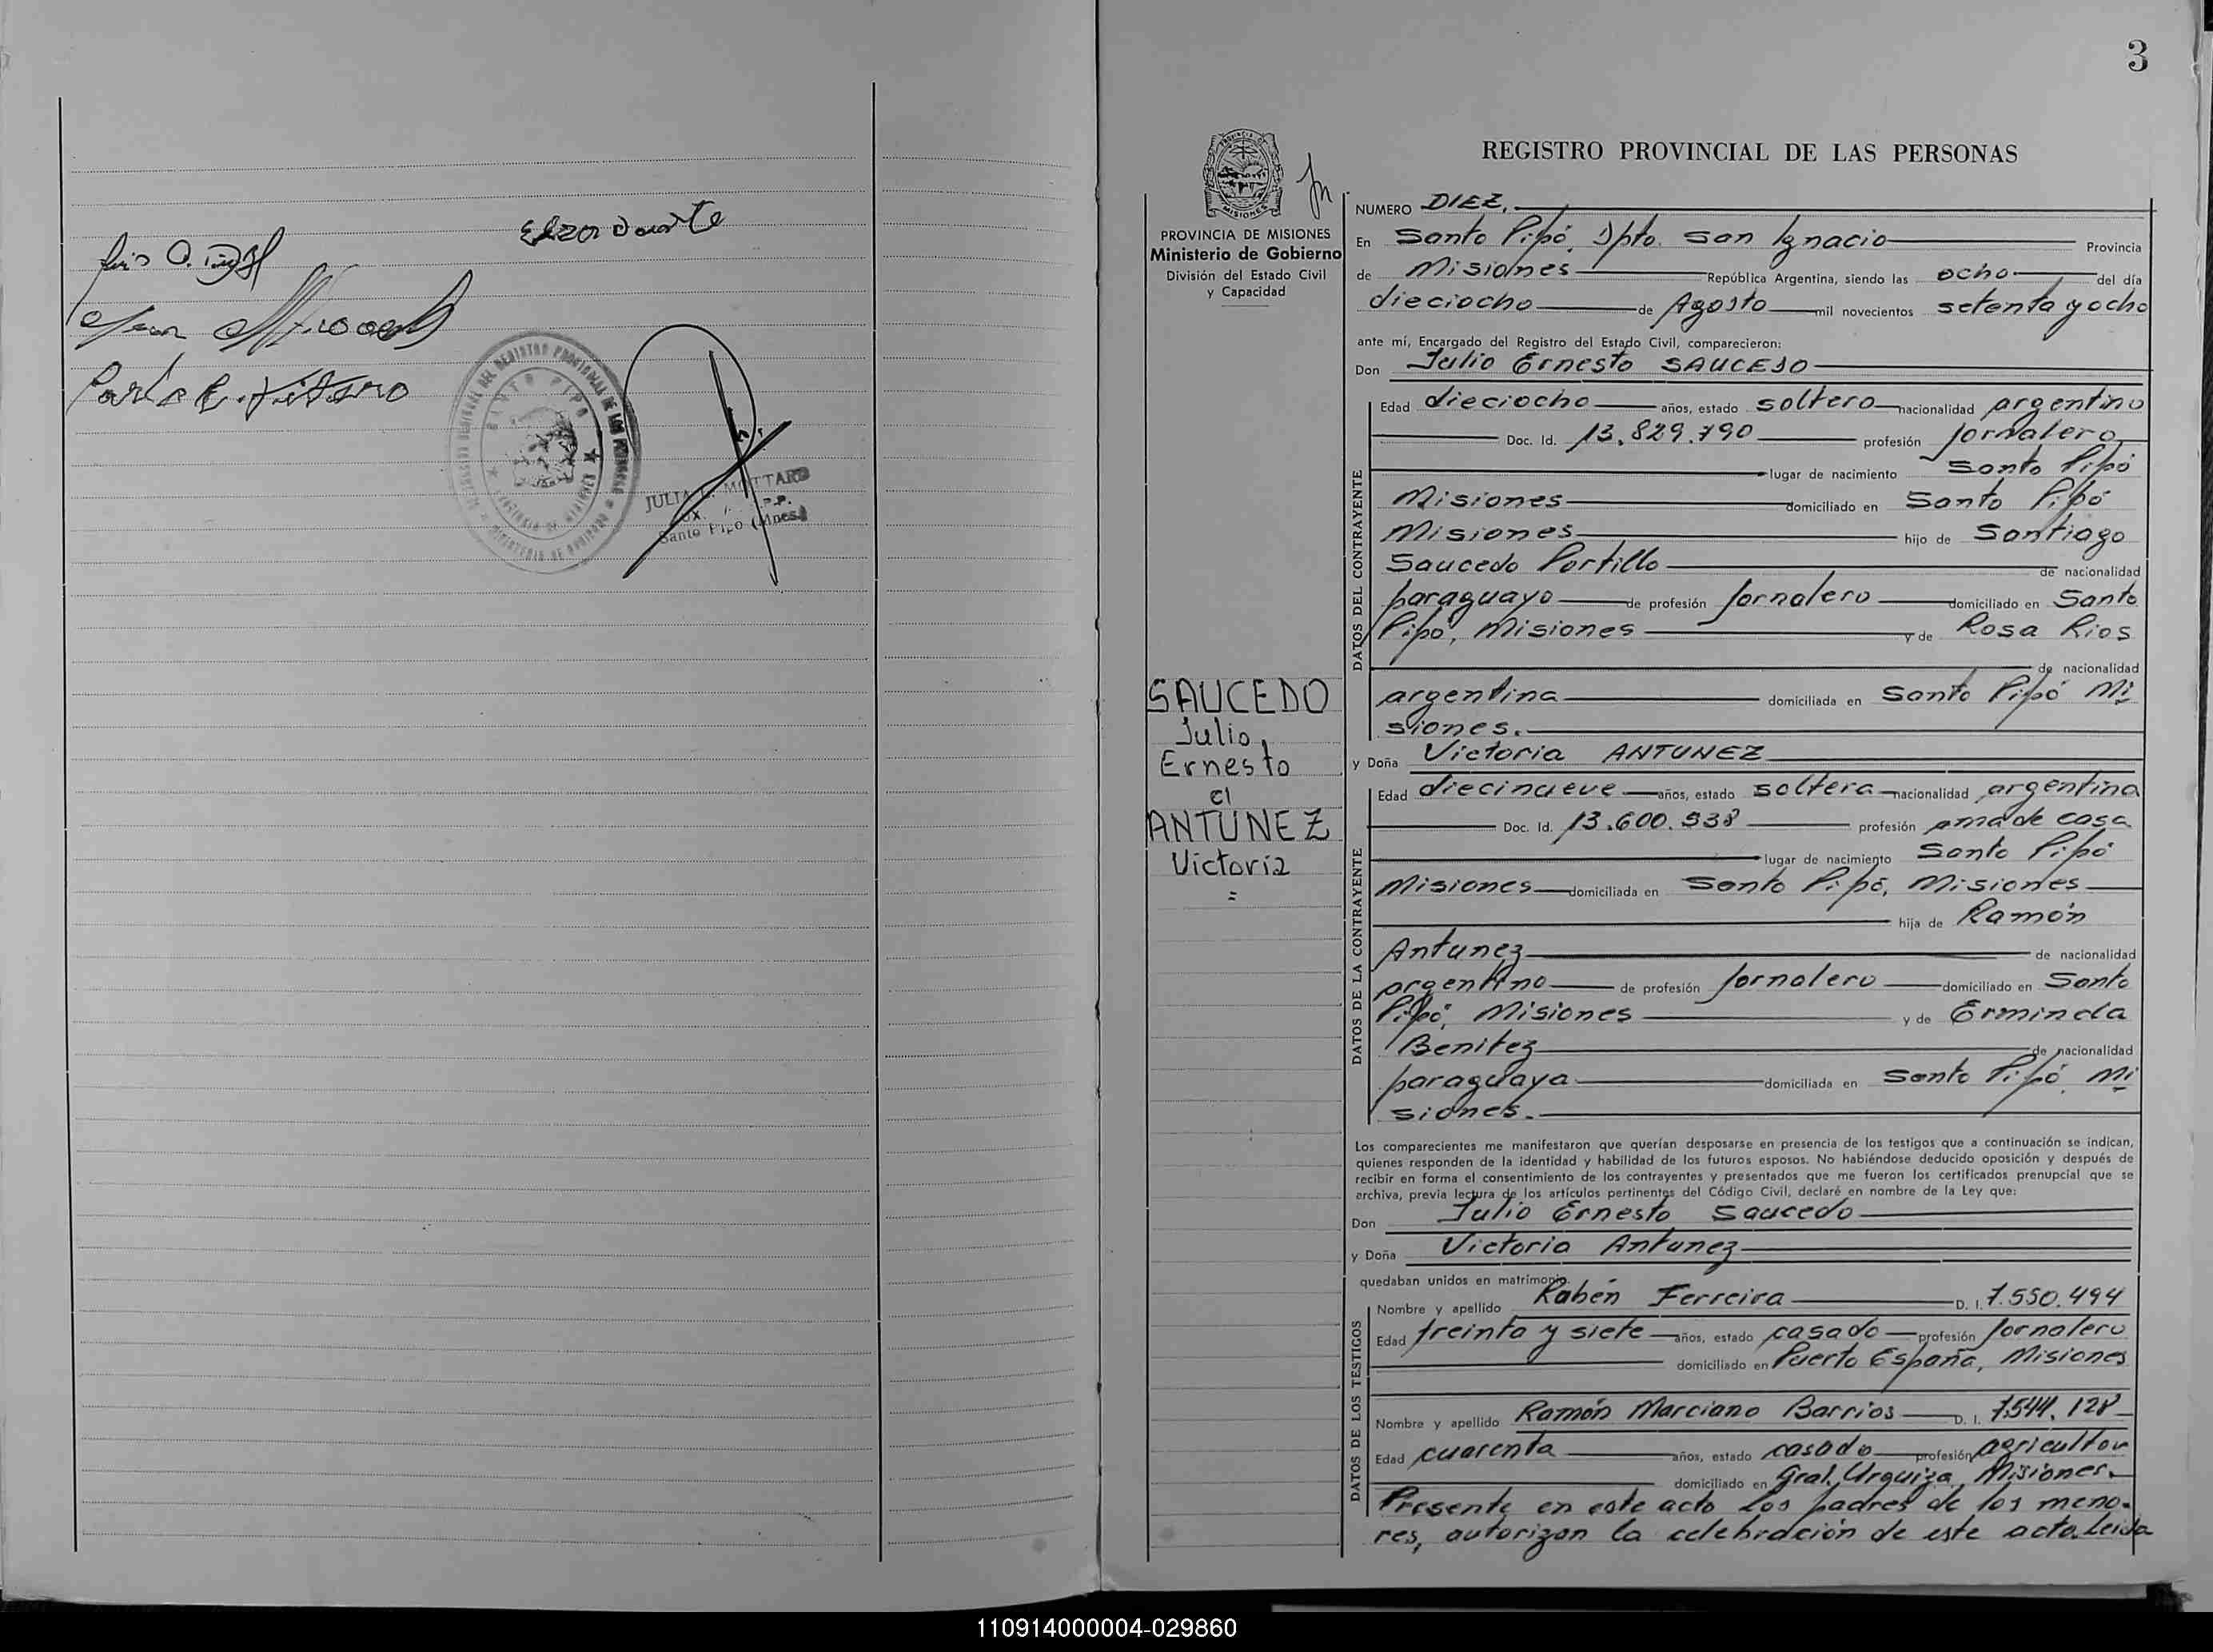 Elza Duarte
REGISTRO PROVINCIAL DE LAS PERSONAS
SANTO PIPO
JULIA MOTTARD
Santo Pipó (Mnes.)
3
REGISTRO PROVINCIAL DE LAS PERSONAS
MISIONES
PROVINCIA DE MISIONES
Ministerio de Gobierno
División del Estado Civil
y Capacidad
SAUCEDO
Julio
Ernesto
c/
ANTUNEZ
Victoria
=
NUMERO DIEZ.
En Santo Pipó, Dpto. San Ignacio Provincia
de Misiones República Argentina, siendo las ocho del día
dieciocho de Agosto mil novecientos setenta y ocho
ante mí, Encargado del Registro del Estado Civil, comparecieron:
Don Julio Ernesto SAUCEDO
DATOS DEL CONTRAYENTE
Edad dieciocho años, estado soltero nacionalidad argentino
Doc. Id. 13.829.790 profesión Jornalero
lugar de nacimiento Santo Pipó
Misiones domiciliado en Santo Pipó
Misiones hijo de Santiago
Saucedo Portillo de nacionalidad
paraguayo de profesión Jornalero domiciliado en Santo
Pipó, Misiones y de Rosa Rios
de nacionalidad
argentina domiciliada en Santo Pipó Mi
siones.
y Doña Victoria ANTUNEZ
DATOS DE LA CONTRAYENTE
Edad diecinueve años, estado soltera nacionalidad argentina
Doc. Id. 13.600.538 profesión ama de casa
lugar de nacimiento Santo Pipó
Misiones domiciliada en Santo Pipó, Misiones
hija de Ramón
Antunez de nacionalidad
argentino de profesión Jornalero domiciliado en Santo
Pipó, Misiones y de Erminda
Benitez de nacionalidad
paraguaya domiciliada en Santo Pipó, Mi
siones.
Los comparecientes me manifestaron que querían desposarse en presencia de los testigos que a continuación se indican,
quienes responden de la identidad y habilidad de los futuros esposos. No habiéndose deducido oposición y después de
recibir en forma el consentimiento de los contrayentes y presentados que me fueron los certificados prenupcial que se
archiva, previa lectura de los artículos pertinentes del Código Civil, declaré en nombre de la Ley que:
Don Julio Ernesto Saucedo
y Doña Victoria Antunez
quedaban unidos en matrimonio.
DATOS DE LOS TESTIGOS
Nombre y apellido Rubén Ferreira D. I. 7.550.494
Edad treinta y siete años, estado casado profesión Jornalero
domiciliado en Puerto España, Misiones
Nombre y apellido Ramón Marciano Barrios D. I. 7.544.128
Edad cuarenta años, estado casado profesión agricultor
domiciliado en Gral. Urquiza, Misiones.
Presente en este acto los padres de los meno-
res, autorizan la celebración de este acto. Leida
110914000004-029860